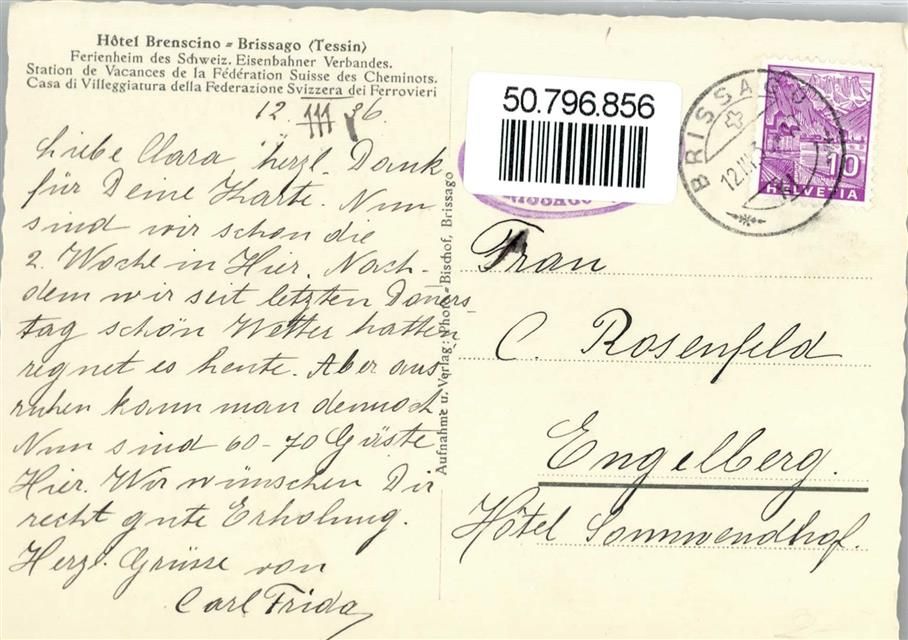 Hôtel Brenscino - Brissago (Tessin)
Ferienheim des Schweiz. Eisenbahner Verbandes.
Station de Vacances de la Fédération Suisse des Cheminots.
Casa di Villeggiatura della Federazione Svizzera dei Ferrovieri
12. III 36.
Liebe Clara herzl. Dank
für Deine Karte. Nun
sind wir schon die
2. Woche in Hier. Nach-
dem wir seit letzten Doners
tag schön Wetter hatten
regnet es heute. Aber aus
ruhen kann man dennoch
Nun sind 60-70 Gäste
Hier. Wir wünschen Dir
recht gute Erholung.
Herzl. Grüsse von
Carl Frida
Aufnahme u. Verlag: Photo-Bischof, Brissago
50.796.856
BRISSAGO
12.III.3
10
HELVETIA
Frau
C. Rosenfeld
Engelberg.
Hôtel Sonnwendhof.